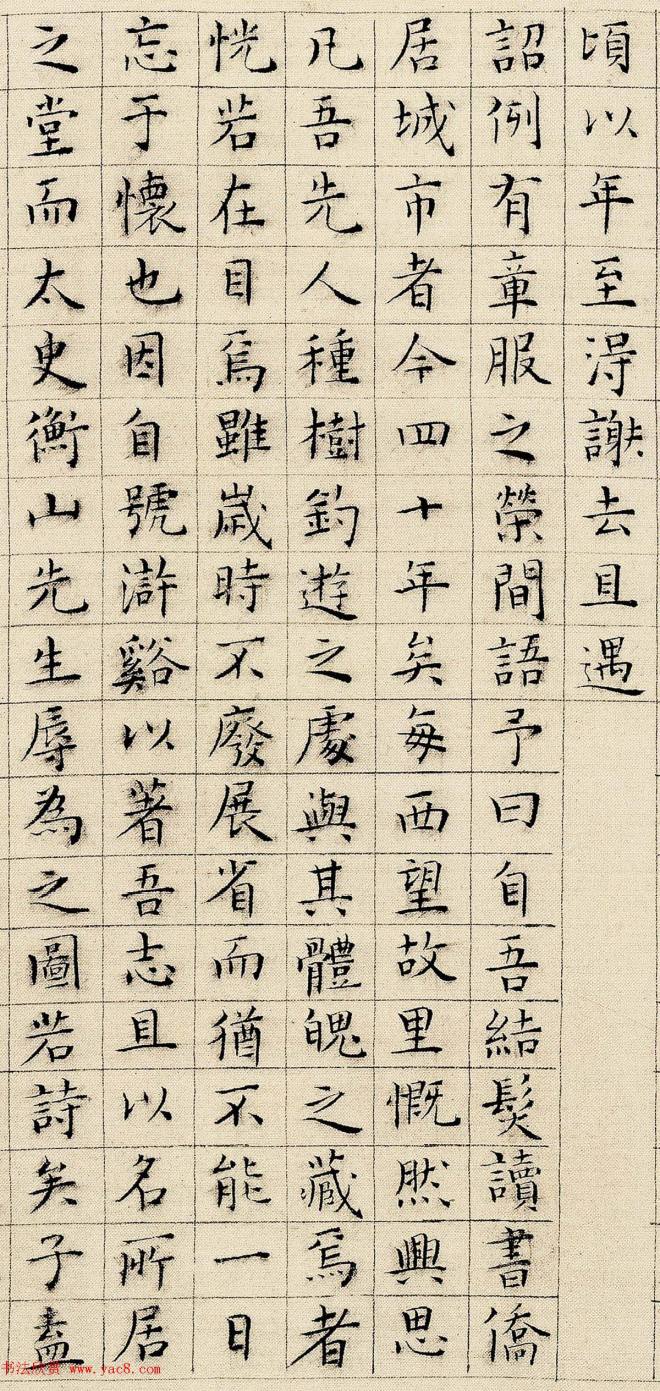 頃以年至淂謝去且遇
詔例有章服之榮間語予曰自吾結髮讀書僑
居城市者今四十年矣每西望故里慨然興思
凡吾先人種樹釣遊之處與其體魄之藏焉者
恍若在目焉雖歲時不廢展省而猶不能一日
忘于懷也因自號滸谿以著吾志且以名所居
之堂而太史衡山先生辱為之圖若詩矣子盍
书法欣赏 www.yac8.com